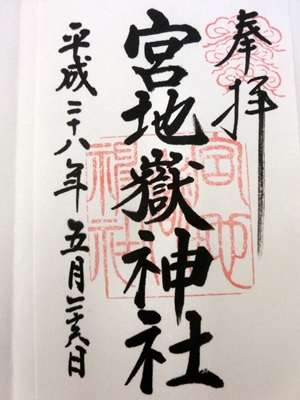 奉拝
宮地嶽神社
平成二十八年五月二十六日
宮地
嶽
神社